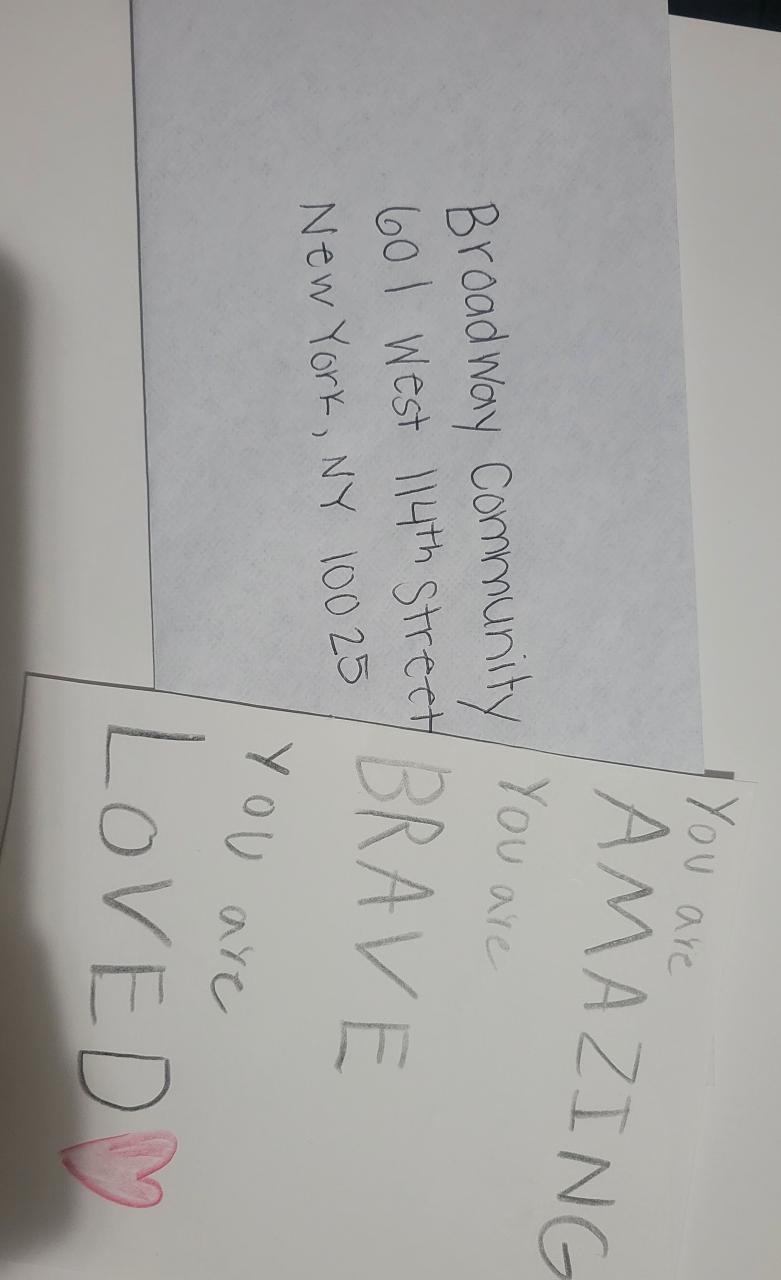 Broadway Community
601 West 114th Street
New York, NY 10025
You are
AMAZING
You are
BRAVE
You are
LOVED